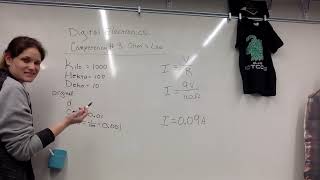 Digital Electronics
Competency #3 Ohm's Law
Kilo = 1000
Hekto = 100
Deka = 10
original
d
0.01
0.001
I = V
R
I = 9V
I = 0.09A